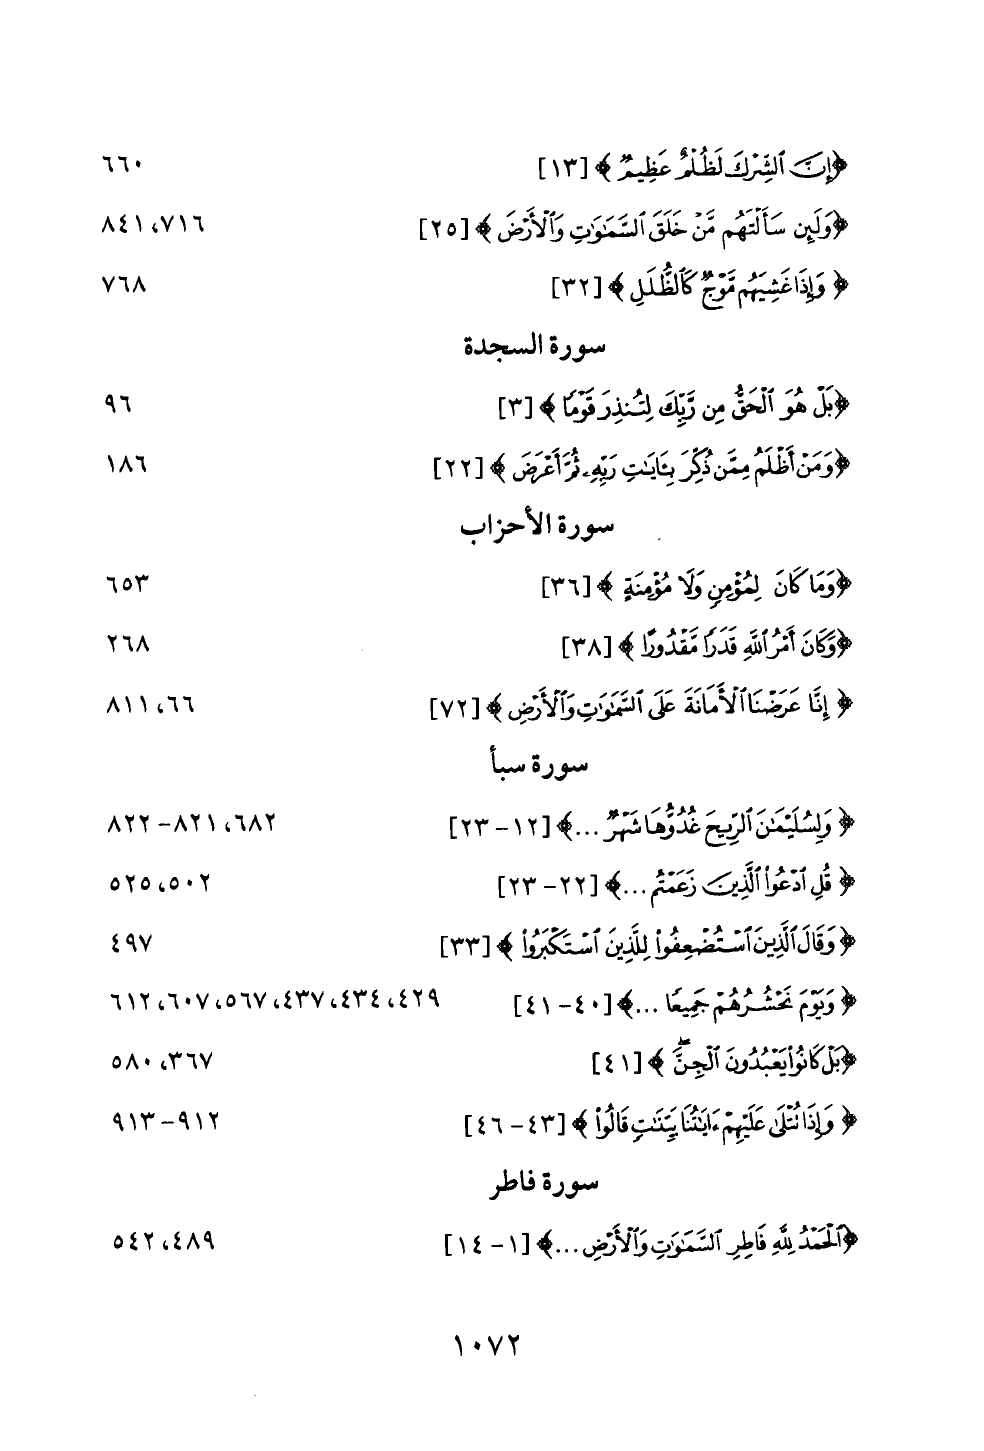 ﴿إِنَّ ٱلشِّرْكَ لَظُلْمٌ عَظِيمٌ﴾ [١٣] ٦٦٠
﴿وَلَئِن سَأَلْتَهُم مَّنْ خَلَقَ ٱلسَّمَٰوَٰتِ وَٱلْأَرْضَ﴾ [٢٥] ٧١٦، ٨٤١
﴿وَإِذَا غَشِيَهُم مَّوْجٌ كَٱلظُّلَلِ﴾ [٣٢] ٧٦٨
سورة السجدة
﴿بَلْ هُوَ ٱلْحَقُّ مِن رَّبِّكَ لِتُنذِرَ قَوْمًا﴾ [٣] ٩٦
﴿وَمَنْ أَظْلَمُ مِمَّن ذُكِّرَ بِـَٔايَٰتِ رَبِّهِۦ ثُمَّ أَعْرَضَ﴾ [٢٢] ١٨٦
سورة الأحزاب
﴿وَمَا كَانَ لِمُؤْمِنٍ وَلَا مُؤْمِنَةٍ﴾ [٣٦] ٦٥٣
﴿وَكَانَ أَمْرُ ٱللَّهِ قَدَرًا مَّقْدُورًا﴾ [٣٨] ٢٦٨
﴿إِنَّا عَرَضْنَا ٱلْأَمَانَةَ عَلَى ٱلسَّمَٰوَٰتِ وَٱلْأَرْضِ﴾ [٧٢] ٦٦، ٨١١
سورة سبأ
﴿وَلِسُلَيْمَٰنَ ٱلرِّيحَ غُدُوُّهَا شَهْرٌ ...﴾ [١٢ - ٢٣] ٦٨٢، ٨٢١ - ٨٢٢
﴿قُلِ ٱدْعُوا۟ ٱلَّذِينَ زَعَمْتُم ...﴾ [٢٢ - ٢٣] ٥٠٢، ٥٢٥
﴿وَقَالَ ٱلَّذِينَ ٱسْتُضْعِفُوا۟ لِلَّذِينَ ٱسْتَكْبَرُوا۟﴾ [٣٣] ٤٩٧
﴿وَيَوْمَ نَحْشُرُهُمْ جَمِيعًا ...﴾ [٤٠ - ٤١] ٤٢٩، ٤٣٤، ٤٣٧، ٥٦٧، ٦٠٧، ٦١٢
﴿بَلْ كَانُوا۟ يَعْبُدُونَ ٱلْجِنَّ ۖ﴾ [٤١] ٣٦٧، ٥٨٠
﴿وَإِذَا تُتْلَىٰ عَلَيْهِمْ ءَايَٰتُنَا بَيِّنَٰتٍ قَالُوا۟﴾ [٤٣ - ٤٦] ٩١٢ - ٩١٣
سورة فاطر
﴿ٱلْحَمْدُ لِلَّهِ فَاطِرِ ٱلسَّمَٰوَٰتِ وَٱلْأَرْضِ ...﴾ [١ - ١٤] ٤٨٩، ٥٤٢
١٠٧٢